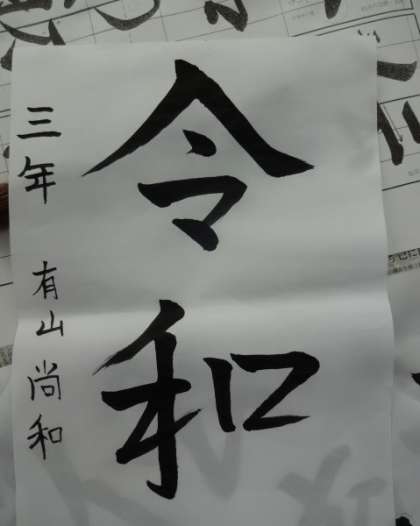 令和
三年 有山尚和